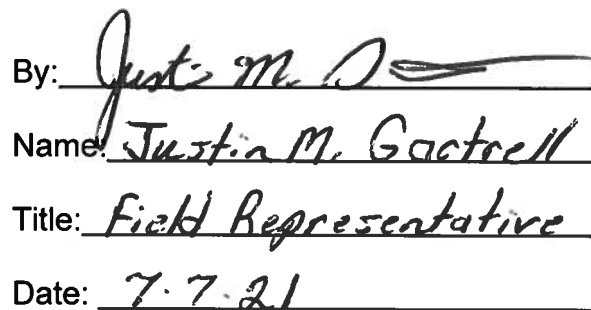 By: Justin M.
Name: Justin M. Gactrell
Title: Field Representative
Date: 7.7.21